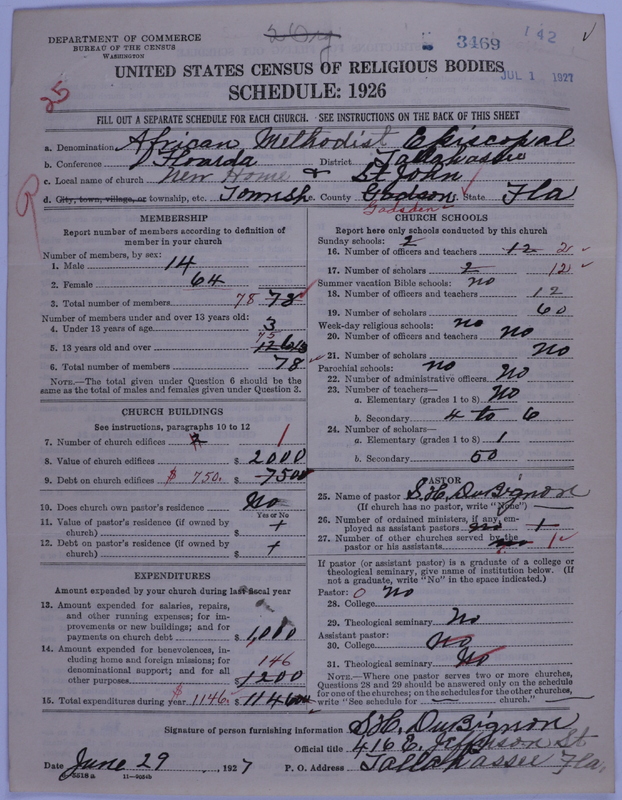 DEPARTMENT OF COMMERCE
BUREAU OF THE CENSUS
WASHINGTON
2 Org
3469
142
JUL 1 1927
25
UNITED STATES CENSUS OF RELIGIOUS BODIES
SCHEDULE: 1926
FILL OUT A SEPARATE SCHEDULE FOR EACH CHURCH. SEE INSTRUCTIONS ON THE BACK OF THIS SHEET
a. Denomination African Methodist Episcopal
b. Conference Floarda District Tallahassee
c. Local name of church New Home & St John
d. City, town, village, or township, etc. Townshp e. County Godson Gadsden State Fla
MEMBERSHIP
Report number of members according to definition of
member in your church
Number of members, by sex:
1. Male 14
2. Female 64
3. Total number of members 78 78
Number of members under and over 13 years old:
4. Under 13 years of age 3
5. 13 years old and over 75
6. Total number of members 78
NOTE.—The total given under Question 6 should be the
same as the total of males and females given under Question 3.
CHURCH BUILDINGS
See instructions, paragraphs 10 to 12
7. Number of church edifices 2 1
8. Value of church edifices $ 2000
9. Debt on church edifices $ 750. $ 7500
10. Does church own pastor's residence No
Yes or No
11. Value of pastor's residence (if owned by
church) $ +
12. Debt on pastor's residence (if owned by
church) $ +
EXPENDITURES
Amount expended by your church during last fiscal year
13. Amount expended for salaries, repairs,
and other running expenses; for im-
provements or new buildings; and for
payments on church debt $ 1,000
14. Amount expended for benevolences, in-
cluding home and foreign missions; for
denominational support; and for all
other purposes 146 $ 1200
15. Total expenditures during year $ 1146. $ 1146
CHURCH SCHOOLS
Report here only schools conducted by this church
Sunday schools: 2
16. Number of officers and teachers 12 2
17. Number of scholars 2 12
Summer vacation Bible schools: no
18. Number of officers and teachers 12
19. Number of scholars 60
Week-day religious schools: no
20. Number of officers and teachers No
21. Number of scholars No
Parochial schools: no
22. Number of administrative officers No
23. Number of teachers—
a. Elementary (grades 1 to 8) No
b. Secondary 4 to 6
24. Number of scholars—
a. Elementary (grades 1 to 8) 1
b. Secondary 50
PASTOR
25. Name of pastor S.H. DuBignon
(If church has no pastor, write "None")
26. Number of ordained ministers, if any, em-
ployed as assistant pastors no 1
27. Number of other churches served by the
pastor or his assistants no 1
If pastor (or assistant pastor) is a graduate of a college or
theological seminary, give name of institution below. (If
not a graduate, write "No" in the space indicated.)
Pastor: 0 No
28. College
29. Theological seminary No
Assistant pastor:
30. College No
31. Theological seminary No
NOTE.—Where one pastor serves two or more churches,
Questions 28 and 29 should be answered only on the schedule
for one of the churches; on the schedules for the other churches,
write "See schedule for church."
Signature of person furnishing information S.H. DuBignon
Official title 416 E. Jefferson St
Date June 29, 1927 P. O. Address Tallahassee Fla,
8518 a 11—9054b